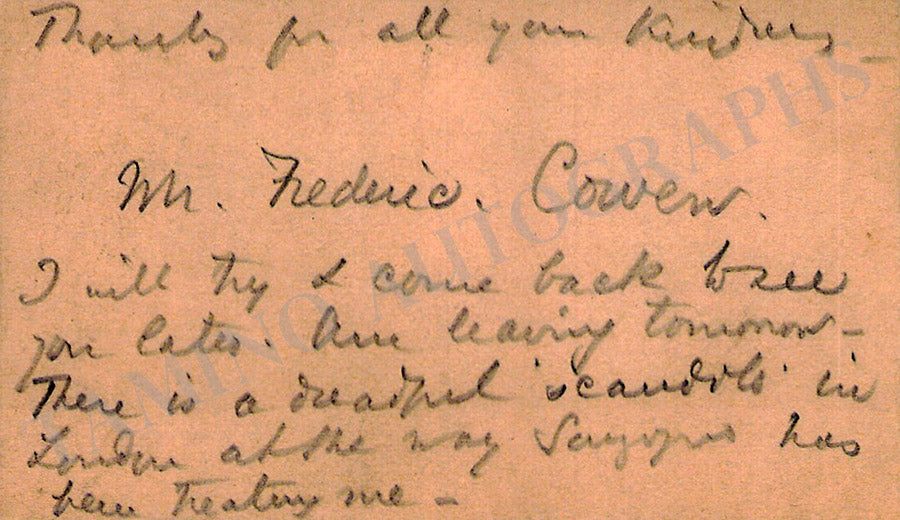 Thanks for all your kindness –
Mr. Frederic. Cowen.
I will try & come back to see
you later. Am leaving tomorrow –
There is a dreadful 'scandolo' in
London at the way has
been treating me –
TAMINO AUTOGRAPHS